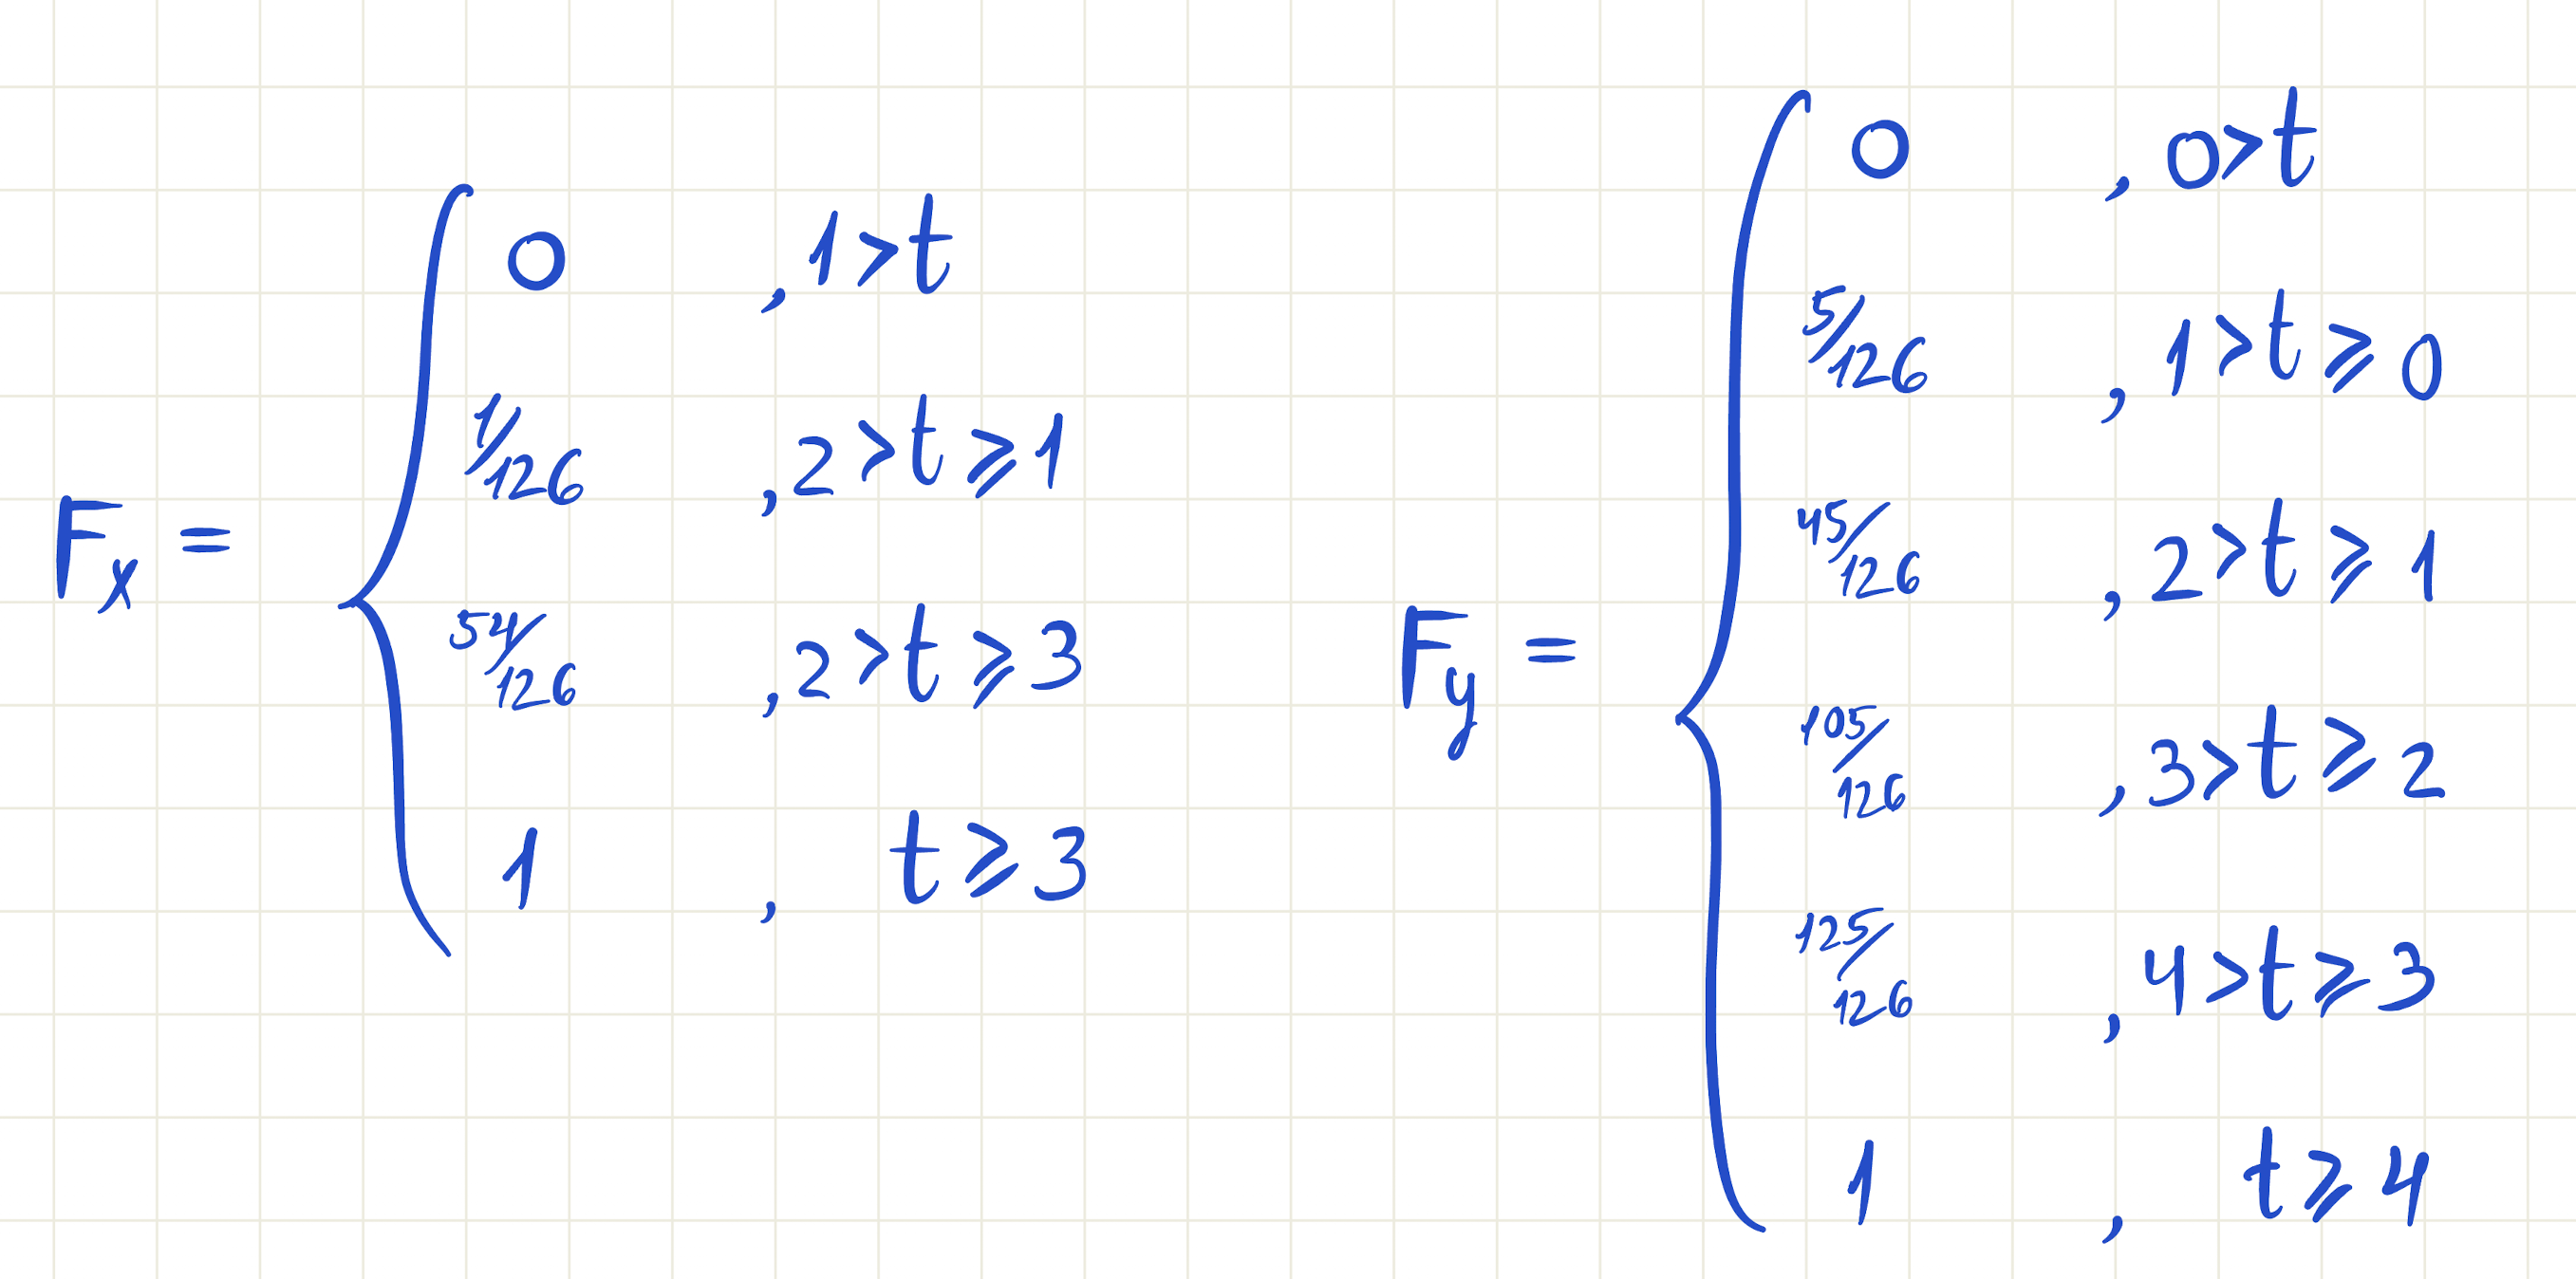 F_x =
0 , 1>t
1/126 , 2>t≥1
54/126 , 2>t≥3
1 , t≥3
F_y =
0 , 0>t
5/126 , 1>t≥0
45/126 , 2>t≥1
105/126 , 3>t≥2
125/126 , 4>t≥3
1 , t≥4